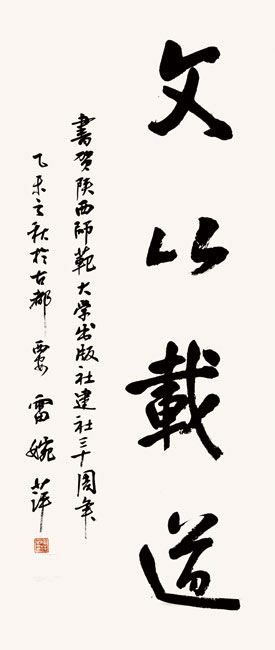 文以載道
書賀陝西師範大学出版社建社三十周年
乙未之秋於古都西安雷婉萍